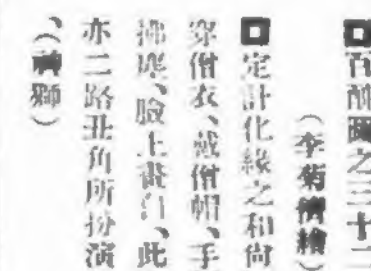 百醜圖之三十二
(李菊儕繪)
定計化緣之和尚
穿僧衣、戴僧帽、手
拂塵、臉上畫白、此
亦二路丑角所扮演
、(神獅)